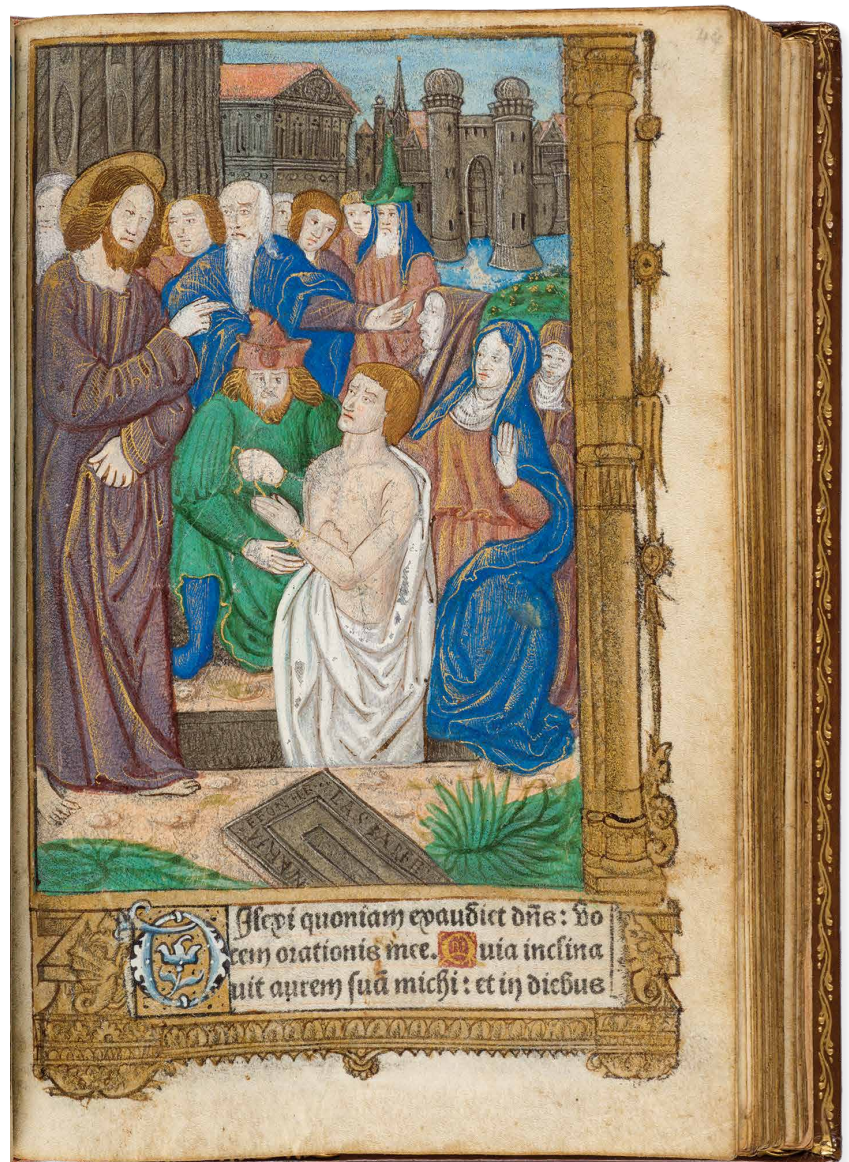 Dilexi quoniam exaudiet dñs: vo
cem orationis mee. Quia inclina
uit aurem suã michi: et in diebus